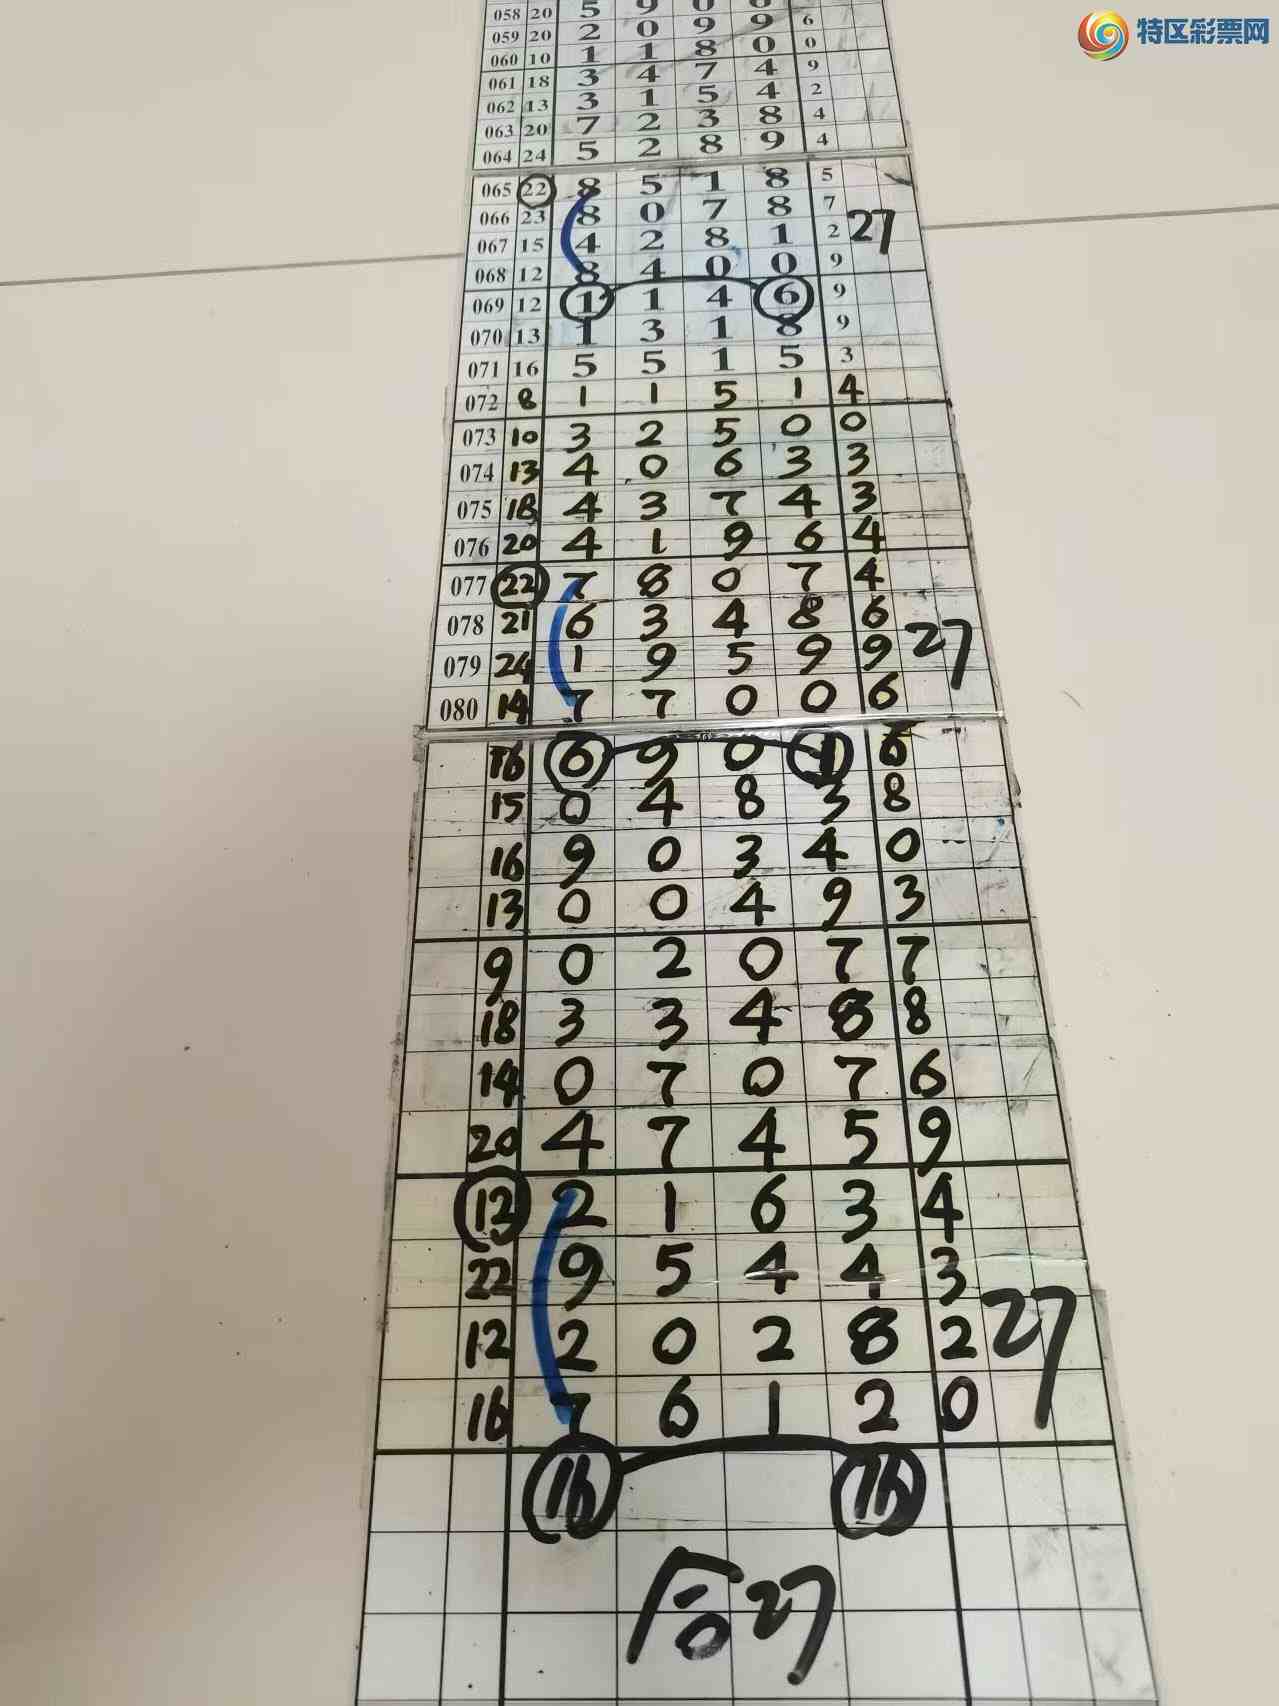 特区彩票网
058 20 5 9 0 6
059 20 2 0 9 9 6
060 10 1 1 8 0 0
061 18 3 4 7 4 9
062 13 3 1 5 4 2
063 20 7 2 3 8 4
064 24 5 2 8 9 4
065 22 8 5 1 8 5
066 23 8 0 7 8 7 27
067 15 4 2 8 1 2
068 12 8 4 0 0 9
069 12 1 1 4 6 9
070 13 1 3 1 8 9
071 16 5 5 1 5 3
072 8 1 1 5 1 4
073 10 3 2 5 0 0
074 13 4 0 6 3 3
075 18 4 3 7 4 3
076 20 4 1 9 6 4
077 22 7 8 0 7 4
078 21 6 3 4 8 6
079 24 1 9 5 9 9 27
080 14 7 7 0 0 6
16 6 9 0 1 6
15 0 4 8 3 8
16 9 0 3 4 0
13 0 0 4 9 3
9 0 2 0 7 7
18 3 3 4 8 8
14 0 7 0 7 6
20 4 7 4 5 9
12 2 1 6 3 4
22 9 5 4 4 3
12 2 0 2 8 2 27
16 7 6 1 2 0
16 16
合27